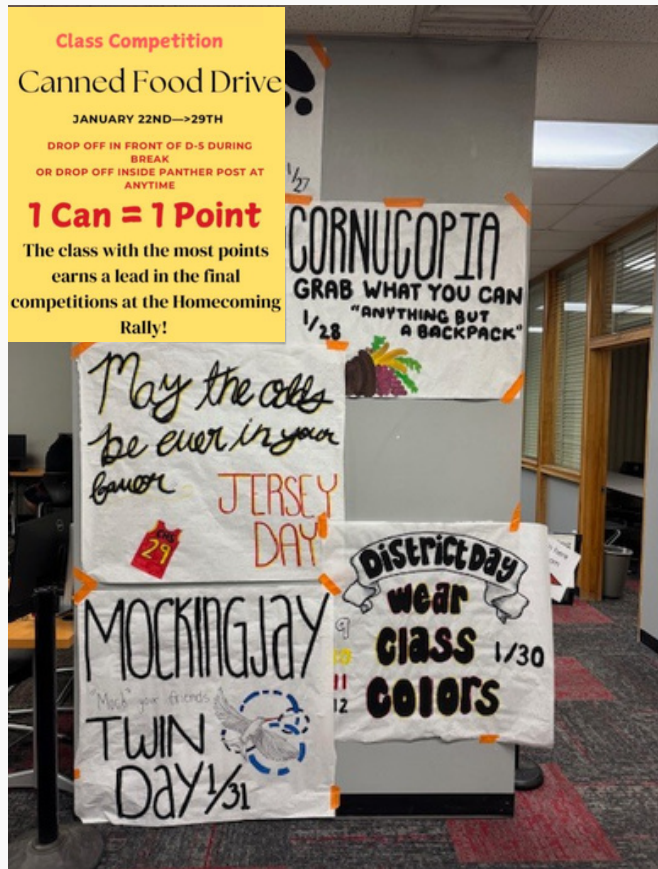 Class Competition
Canned Food Drive
JANUARY 22ND—>29TH
DROP OFF IN FRONT OF D-5 DURING
BREAK
OR DROP OFF INSIDE PANTHER POST AT
ANYTIME
1 Can = 1 Point
The class with the most points
earns a lead in the final
competitions at the Homecoming
Rally!
1/27
CORNUCOPIA
GRAB WHAT YOU CAN
1/28 "ANYTHING BUT
A BACKPACK"
May the odds
be ever in your
favor
JERSEY
DAY
CHS
29
District Day
wear
9
class 1/30
11
colors
12
MOCKINGJAY
"Mock" your friends
TWIN
DAY 1/31